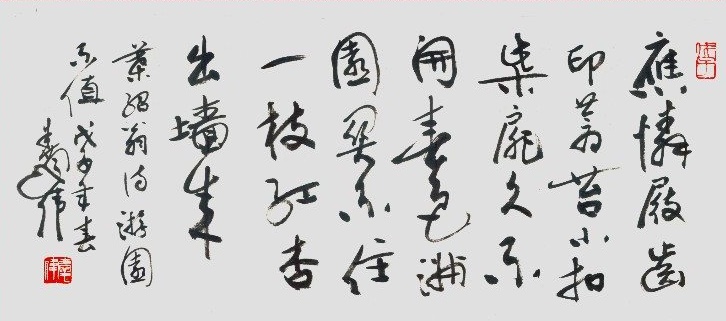 應憐屐齒
印蒼苔小扣
柴扉久不
開春色滿
園關不住
一枝紅杏
出墙来
葉紹翁詩游園
不值 戊子年春